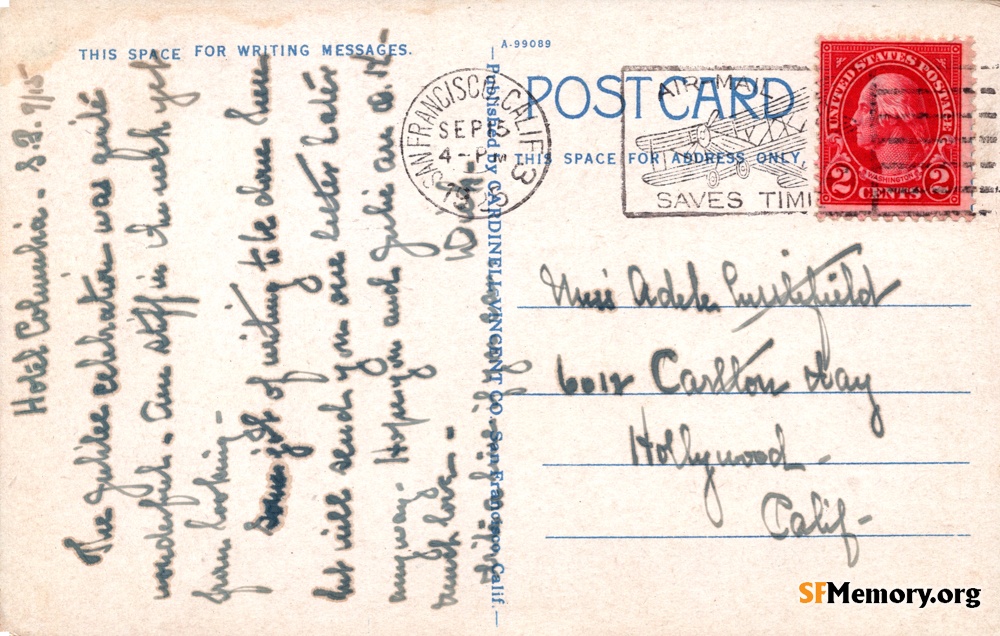 THIS SPACE FOR WRITING MESSAGES.
A-99089
POST CARD
THIS SPACE FOR ADDRESS ONLY.
SAN FRANCISCO, CALIF
3
SEP 15
4-PM
AIR MAIL
SAVES TIME
UNITED STATES POSTAGE
WASHINGTON
2 CENTS 2
Hotel Columbia - S.F. 9/15
The Jubilee celebration was quite
wonderful. Am stiff in the neck yet
from looking -
of writing to be done here
but will send you one letter later
anyway - Hoping you and Julie are O.K. -
much love -
Published by CARDINELL-VINCENT CO., San Francisco, Calif.
Miss Adele Littlefield
6012 Carlton Way
Hollywood -
Calif -
SFMemory.org